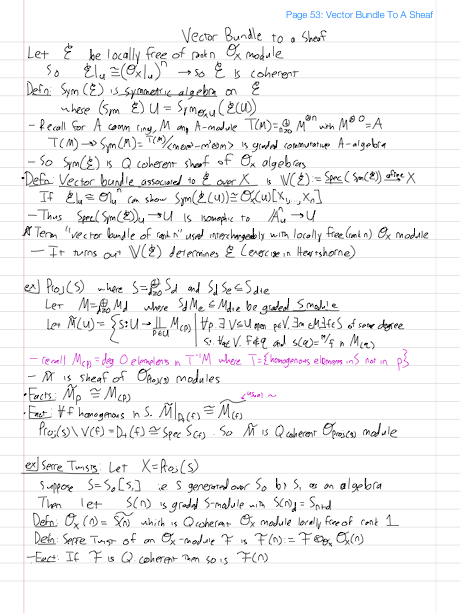 Page 53: Vector Bundle To A Sheaf
Vector Bundle to a Sheaf
Let ℰ be locally free of rank n 𝒪x module
So ℰ|u ≅ (𝒪x|u)^n → so ℰ is coherent
Defn: Sym(ℰ) is symmetric algebra on ℰ
where (Sym ℰ) U = Sym_𝒪x(U) (ℰ(U))
- Recall for A comm ring, M any A-module T(M) = ⊕_{n≥0} M^⊗n with M^⊗0 = A
T(M) → Sym(M) = T(M)/<m⊗m' - m'⊗m> is graded commutative A-algebra
- So Sym(ℰ) is Q coherent sheaf of 𝒪x algebras
• Defn: Vector bundle associated to ℰ over X is 𝕍(ℰ) := Spec(Sym(ℰ)) →affine X
If ℰ|u ≅ 𝒪|u^n can show Sym(ℰ(U)) ≅ 𝒪x(U)[X₁,...,Xn]
- Thus Spec(Sym(ℰ))|u → U is isomorphic to 𝔸^n_u → U
Term "vector bundle of rank n" used interchangeably with locally free (rank n) 𝒪x module
- It turns out 𝕍(ℰ) determines ℰ (exercise in Hartshorne)
ex] Proj(S) where S = ⊕_{d≥0} S_d and S_d S_e ⊆ S_{d+e}
Let M = ⊕ M_d where S_d M_e ⊆ M_{d+e} be graded S module
Let M̃(U) = {s: U → ∐_{p∈U} M_(p) | ∀p ∃ V ⊆ U open p∈V, ∃m∈M ∃f∈S of same degree
s.t. the V. f∉q and s(q) = m/f in M_(q)
- recall M_(p) = deg 0 elements in T⁻¹M where T = {homogenous elements in S not in p}
- M̃ is sheaf of 𝒪_Proj(S) modules
• Facts: M̃_p ≅ M_(p)
usual ~
• Fact: ∀f homogenous in S. M̃|_D₊(f) ≅ M̃_(f)
Proj(S) \ V(f) = D₊(f) ≅ Spec S_(f). So M̃ is Q coherent 𝒪_Proj(S) module
ex] Serre Twists: Let X = Proj(S)
Suppose S = S₀[S₁] i.e S generated over S₀ by S₁ as an algebra
Then let S(n) is graded S-module with S(n)_d = S_{n+d}
Defn: 𝒪x(n) = S̃(n) which is Q coherent 𝒪x module locally free of rank 1
Defn: Serre Twist of an 𝒪x-module ℱ is ℱ(n) := ℱ ⊗_𝒪x 𝒪x(n)
- Fact: If ℱ is Q coherent then so is ℱ(n)